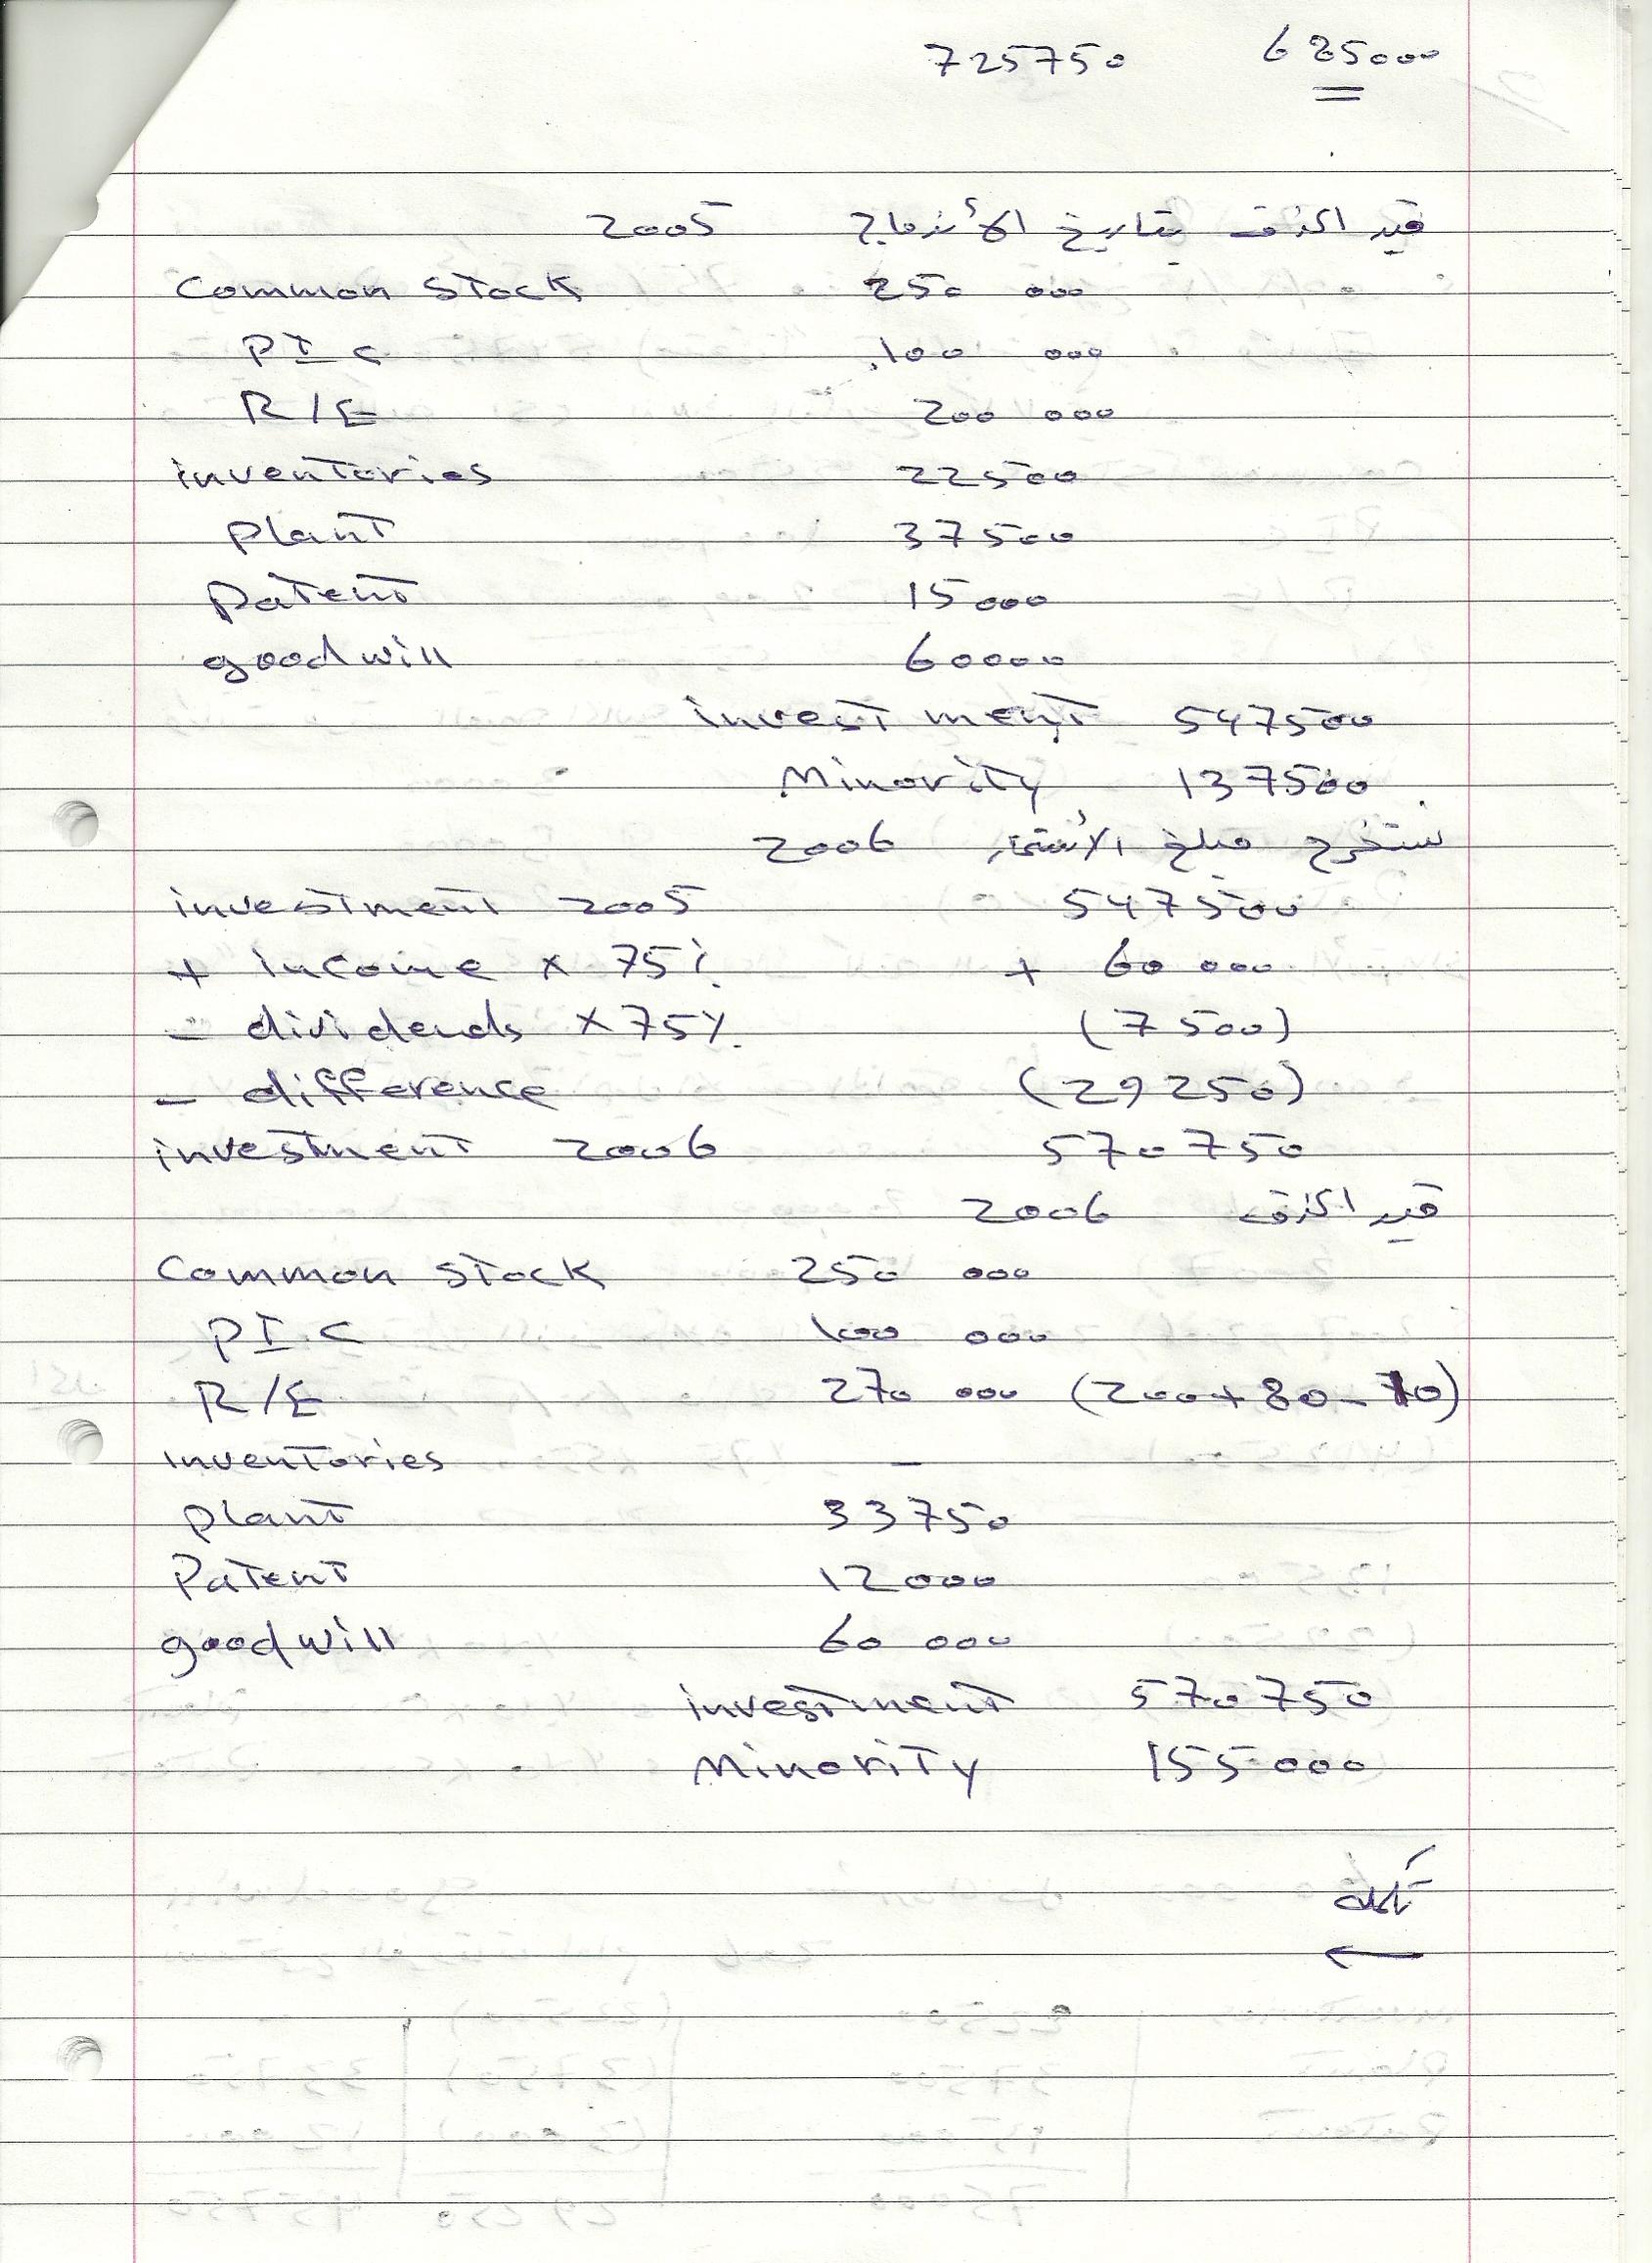 725750 685000
قيد الحذف بتاريخ الأندماج 2005
Common stock 250 000
PIC 100 000
R/E 200 000
inventories 22500
plant 37500
patent 15000
goodwill 60000
investment 547500
Minority 137500
نستخرج مبلغ الأستثمار 2006
investment 2005 547500
+ income x 75% + 60 000
- dividends x 75% (7500)
- difference (29250)
investment 2006 570750
قيد الحذف 2006
Common stock 250 000
PI.C 100 000
R/E 270 000 (200+80-10)
inventories -
plant 33750
Patent 12000
goodwill 60 000
investment 570750
Minority 155000
تكملة
←